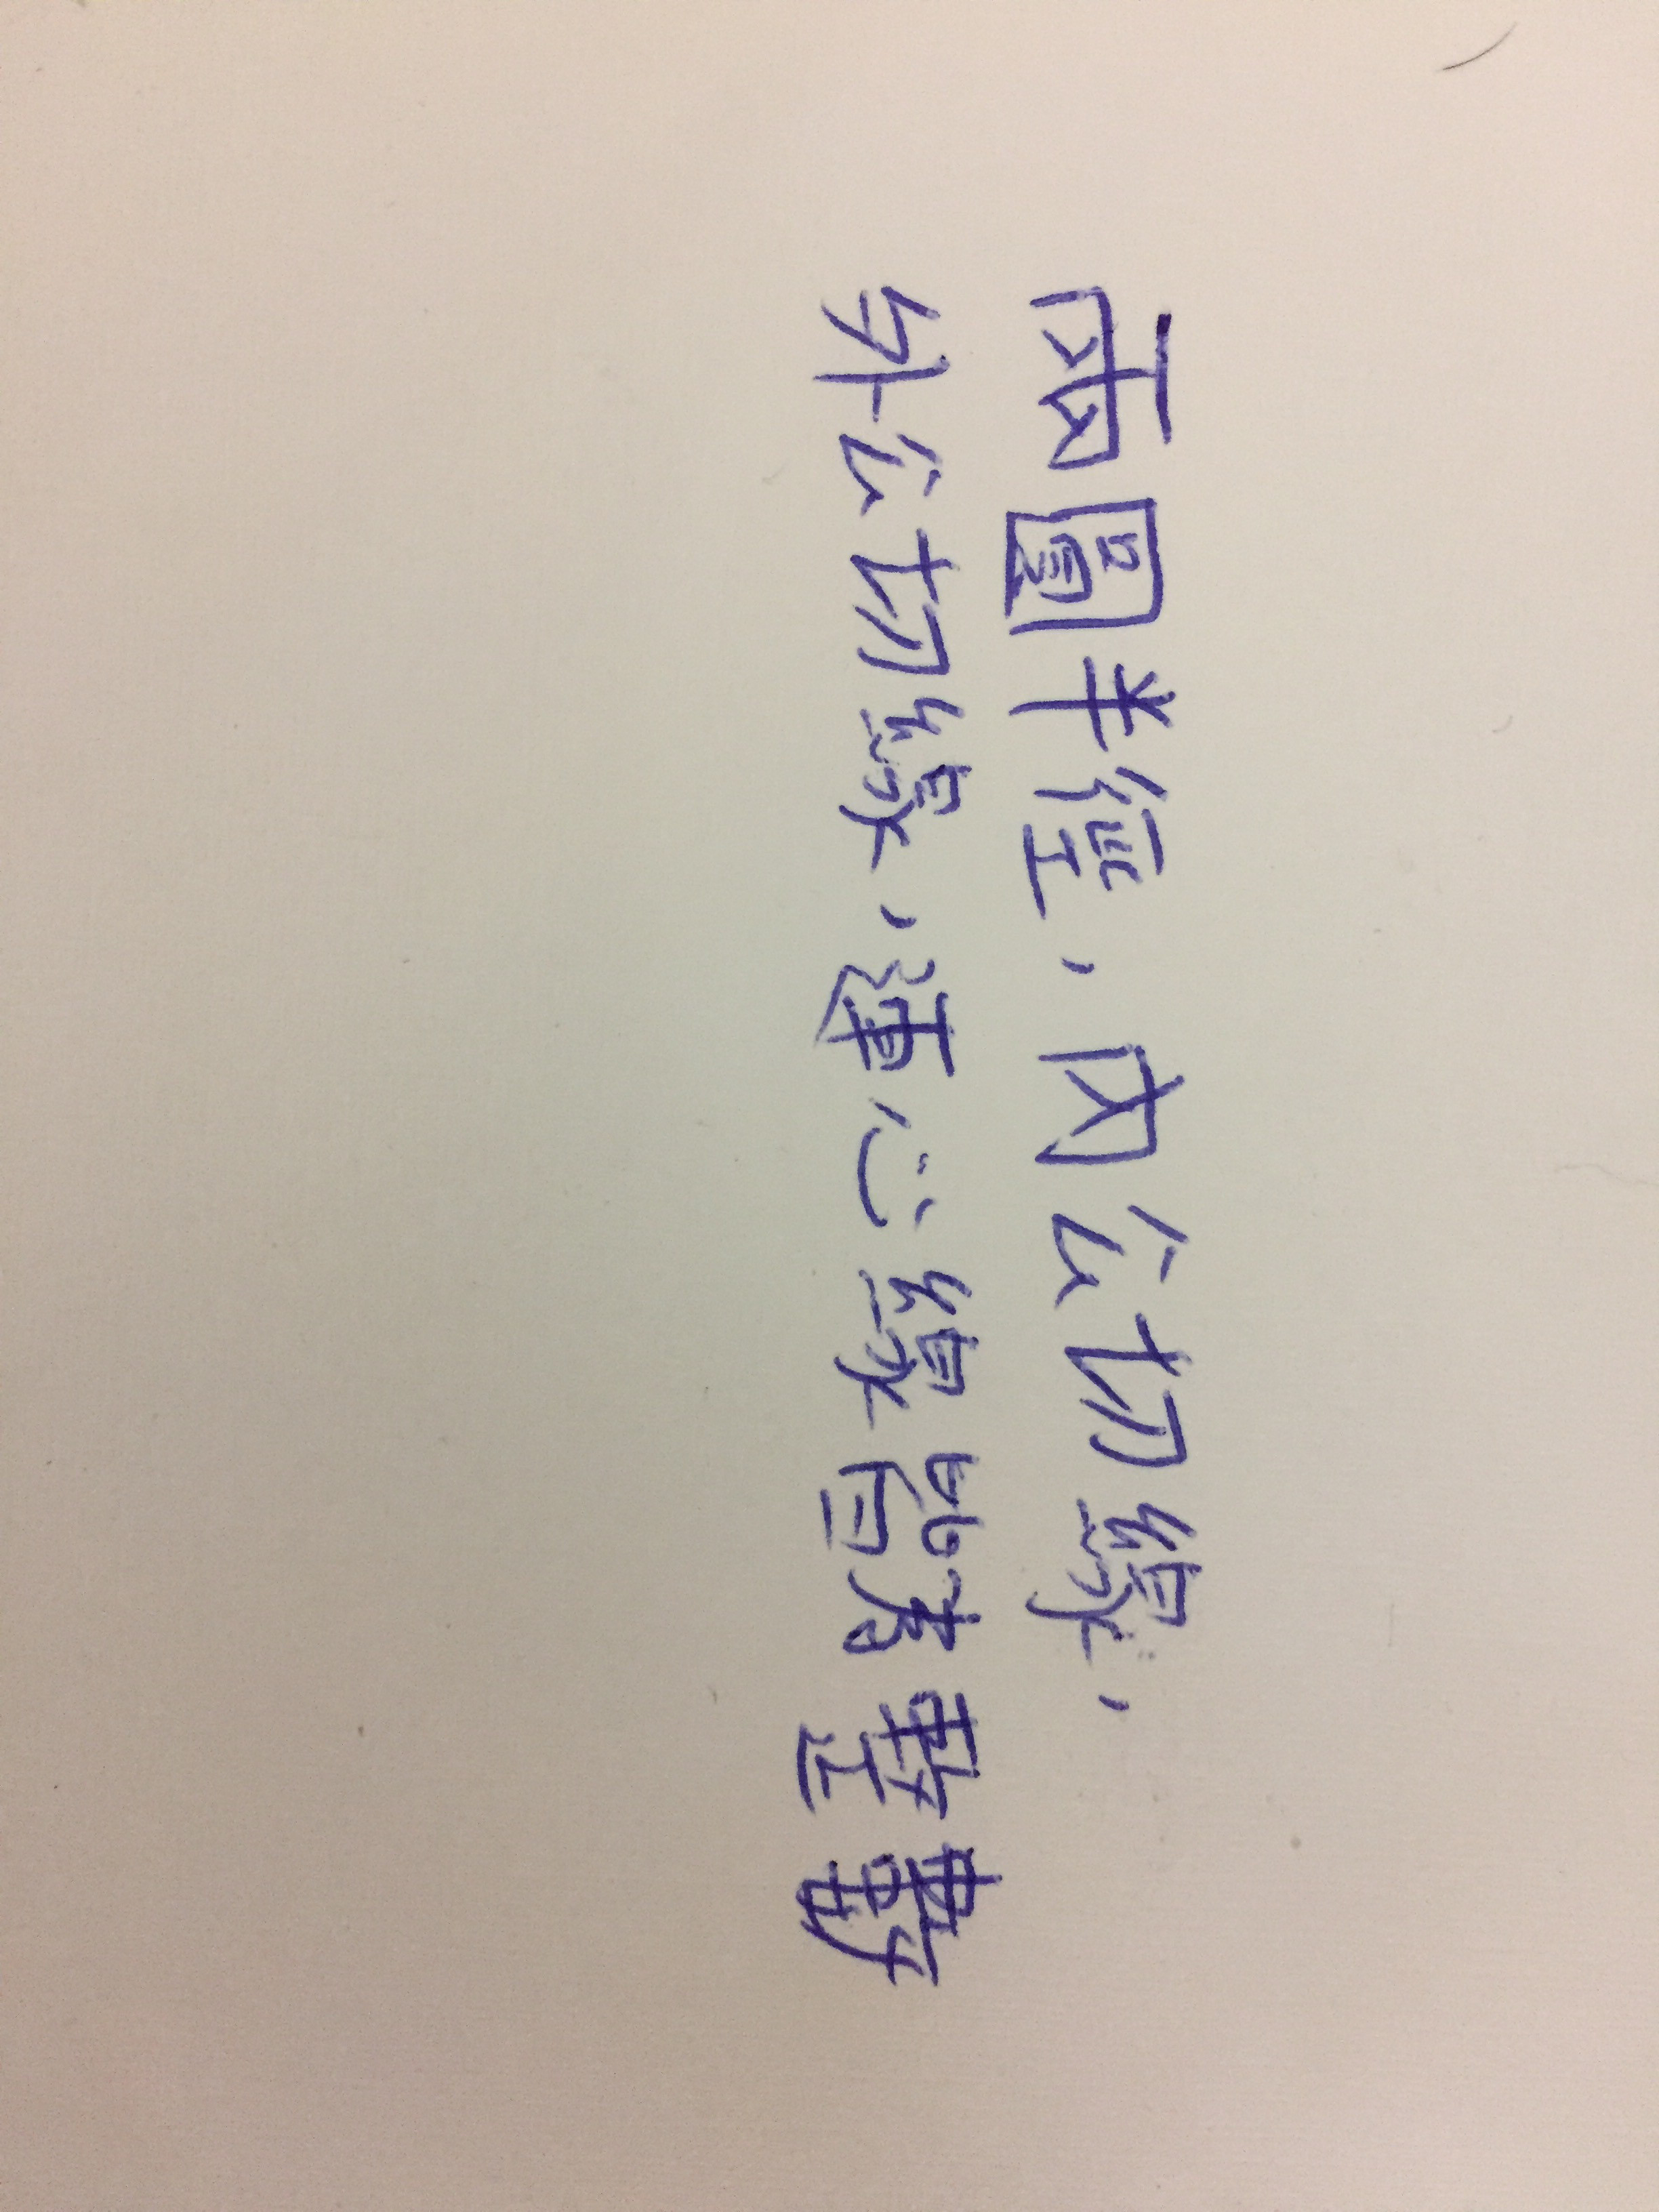 兩圓半徑,內公切線,
外公切線,連心線皆為整數